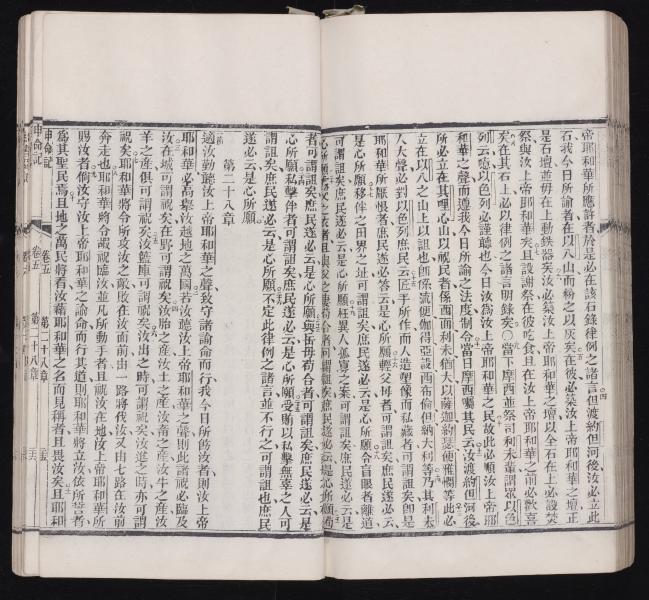 帝耶和華所應許者於是必在該石錄律例之諸言但渡約但河後汝必立此
石我今日所諭者在以八山而粉之以灰矣在彼必築汝上帝耶和華之壇正
是石壇並毋在上動鉄器矣汝必築汝上帝耶和華之壇以全石在上必設焚
祭與汝上帝耶和華矣且設謝祭在彼吃食且在汝上帝耶和華之前必歡喜
矣在其石上必以律例之諸言明錄矣○當下摩西並祭司利未輩謂眾以色
列云以色列必謹聽也今日汝為汝上帝耶和華之民故此必順汝上帝耶
和華之聲而遵我今日所諭之法度制令當日摩西囑其民云汝渡約但河後
所必立在其哩心山以祝民者係西面利未猶大以薩迦約瑟便雅憫等此必
立在以八之山上以詛也即係流便伽得亞設西布倫但納大利等乃其利未
人大聲必對以色列庶民云匠手所作而人造塑像而私藏者可謂詛矣即是
耶和華所厭恨者庶民遂必答云是心所願輕父母者可謂詛矣庶民遂必云
是心所願移伴之田界之址可謂詛矣庶民遂必云是心所願令盲眼者離道
可謂詛矣庶民遂必云是心所願枉異人孤寡之案可謂詛矣庶民遂必云是
心所願
者可謂詛矣庶民遂必云是心所願與岳母苟合者可謂詛矣庶民遂必云是
心所願私擊伴者可謂詛矣庶民遂必云是心所願受賄以私擊無辜之人可
謂詛矣庶民遂必云是心所願不定此律例之諸言並不行之可謂詛也庶民
遂必云是心所願
第二十八章
適汝勤聽汝上帝耶和華之聲致守諸諭命而行我今日所飭汝者則汝上帝
耶和華必高舉汝越地之萬國若汝聽汝上帝耶和華之聲則此諸祝必臨及
汝在城可謂祝矣在野可謂祝矣汝胎之產汝土之產汝畜之產汝牛之產汝
羊之產俱可謂祝矣汝籃庫可謂祝矣汝出之時可謂祝矣汝進之時亦可謂
祝矣耶和華將令所攻汝之敵敗在汝面前由一路將伐汝又由七路在汝前
奔走也耶和華將令祝臨汝並凡所動手者且祝汝在地汝上帝耶和華所
賜汝者倘汝守汝上帝耶和華之諭命而行其道則耶和華將立汝依所誓者
為其聖民焉且地之萬民將看汝藉耶和華之名而見稱者且畏汝矣且耶和
申命記
卷五
第二十八章